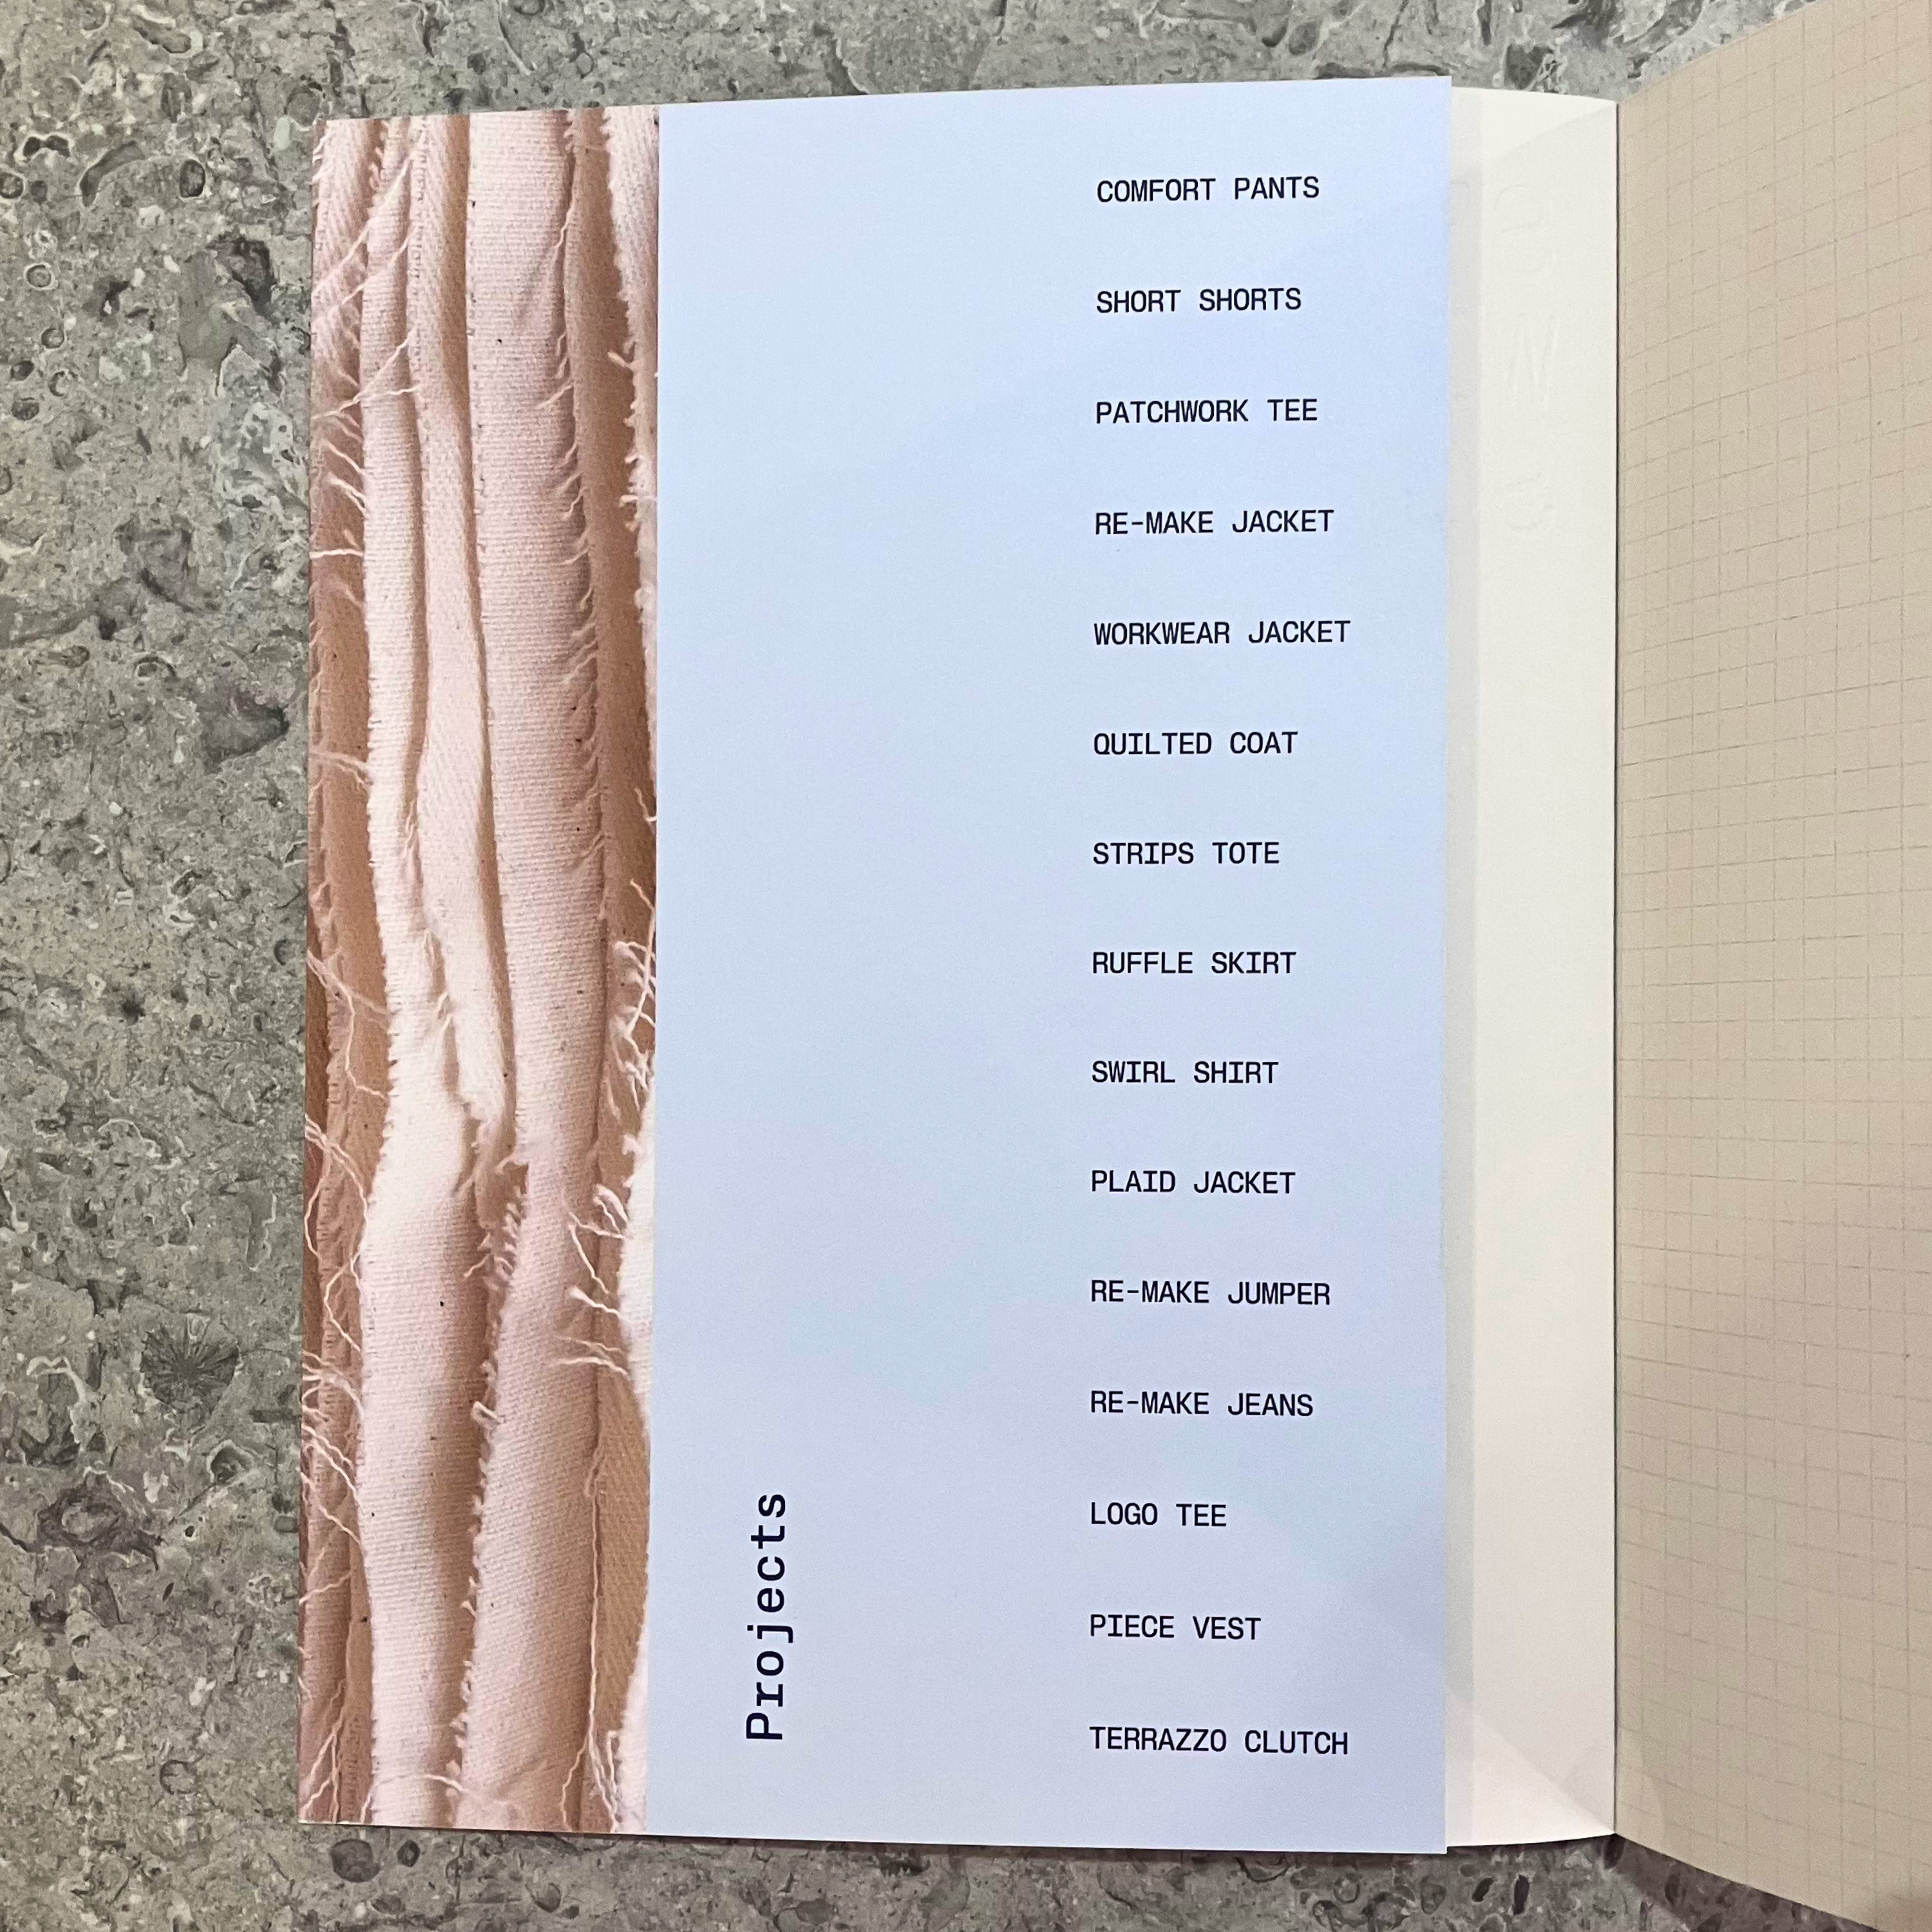 COMFORT PANTS
SHORT SHORTS
PATCHWORK TEE
RE-MAKE JACKET
WORKWEAR JACKET
QUILTED COAT
STRIPS TOTE
RUFFLE SKIRT
SWIRL SHIRT
PLAID JACKET
RE-MAKE JUMPER
RE-MAKE JEANS
LOGO TEE
PIECE VEST
TERRAZZO CLUTCH
Projects